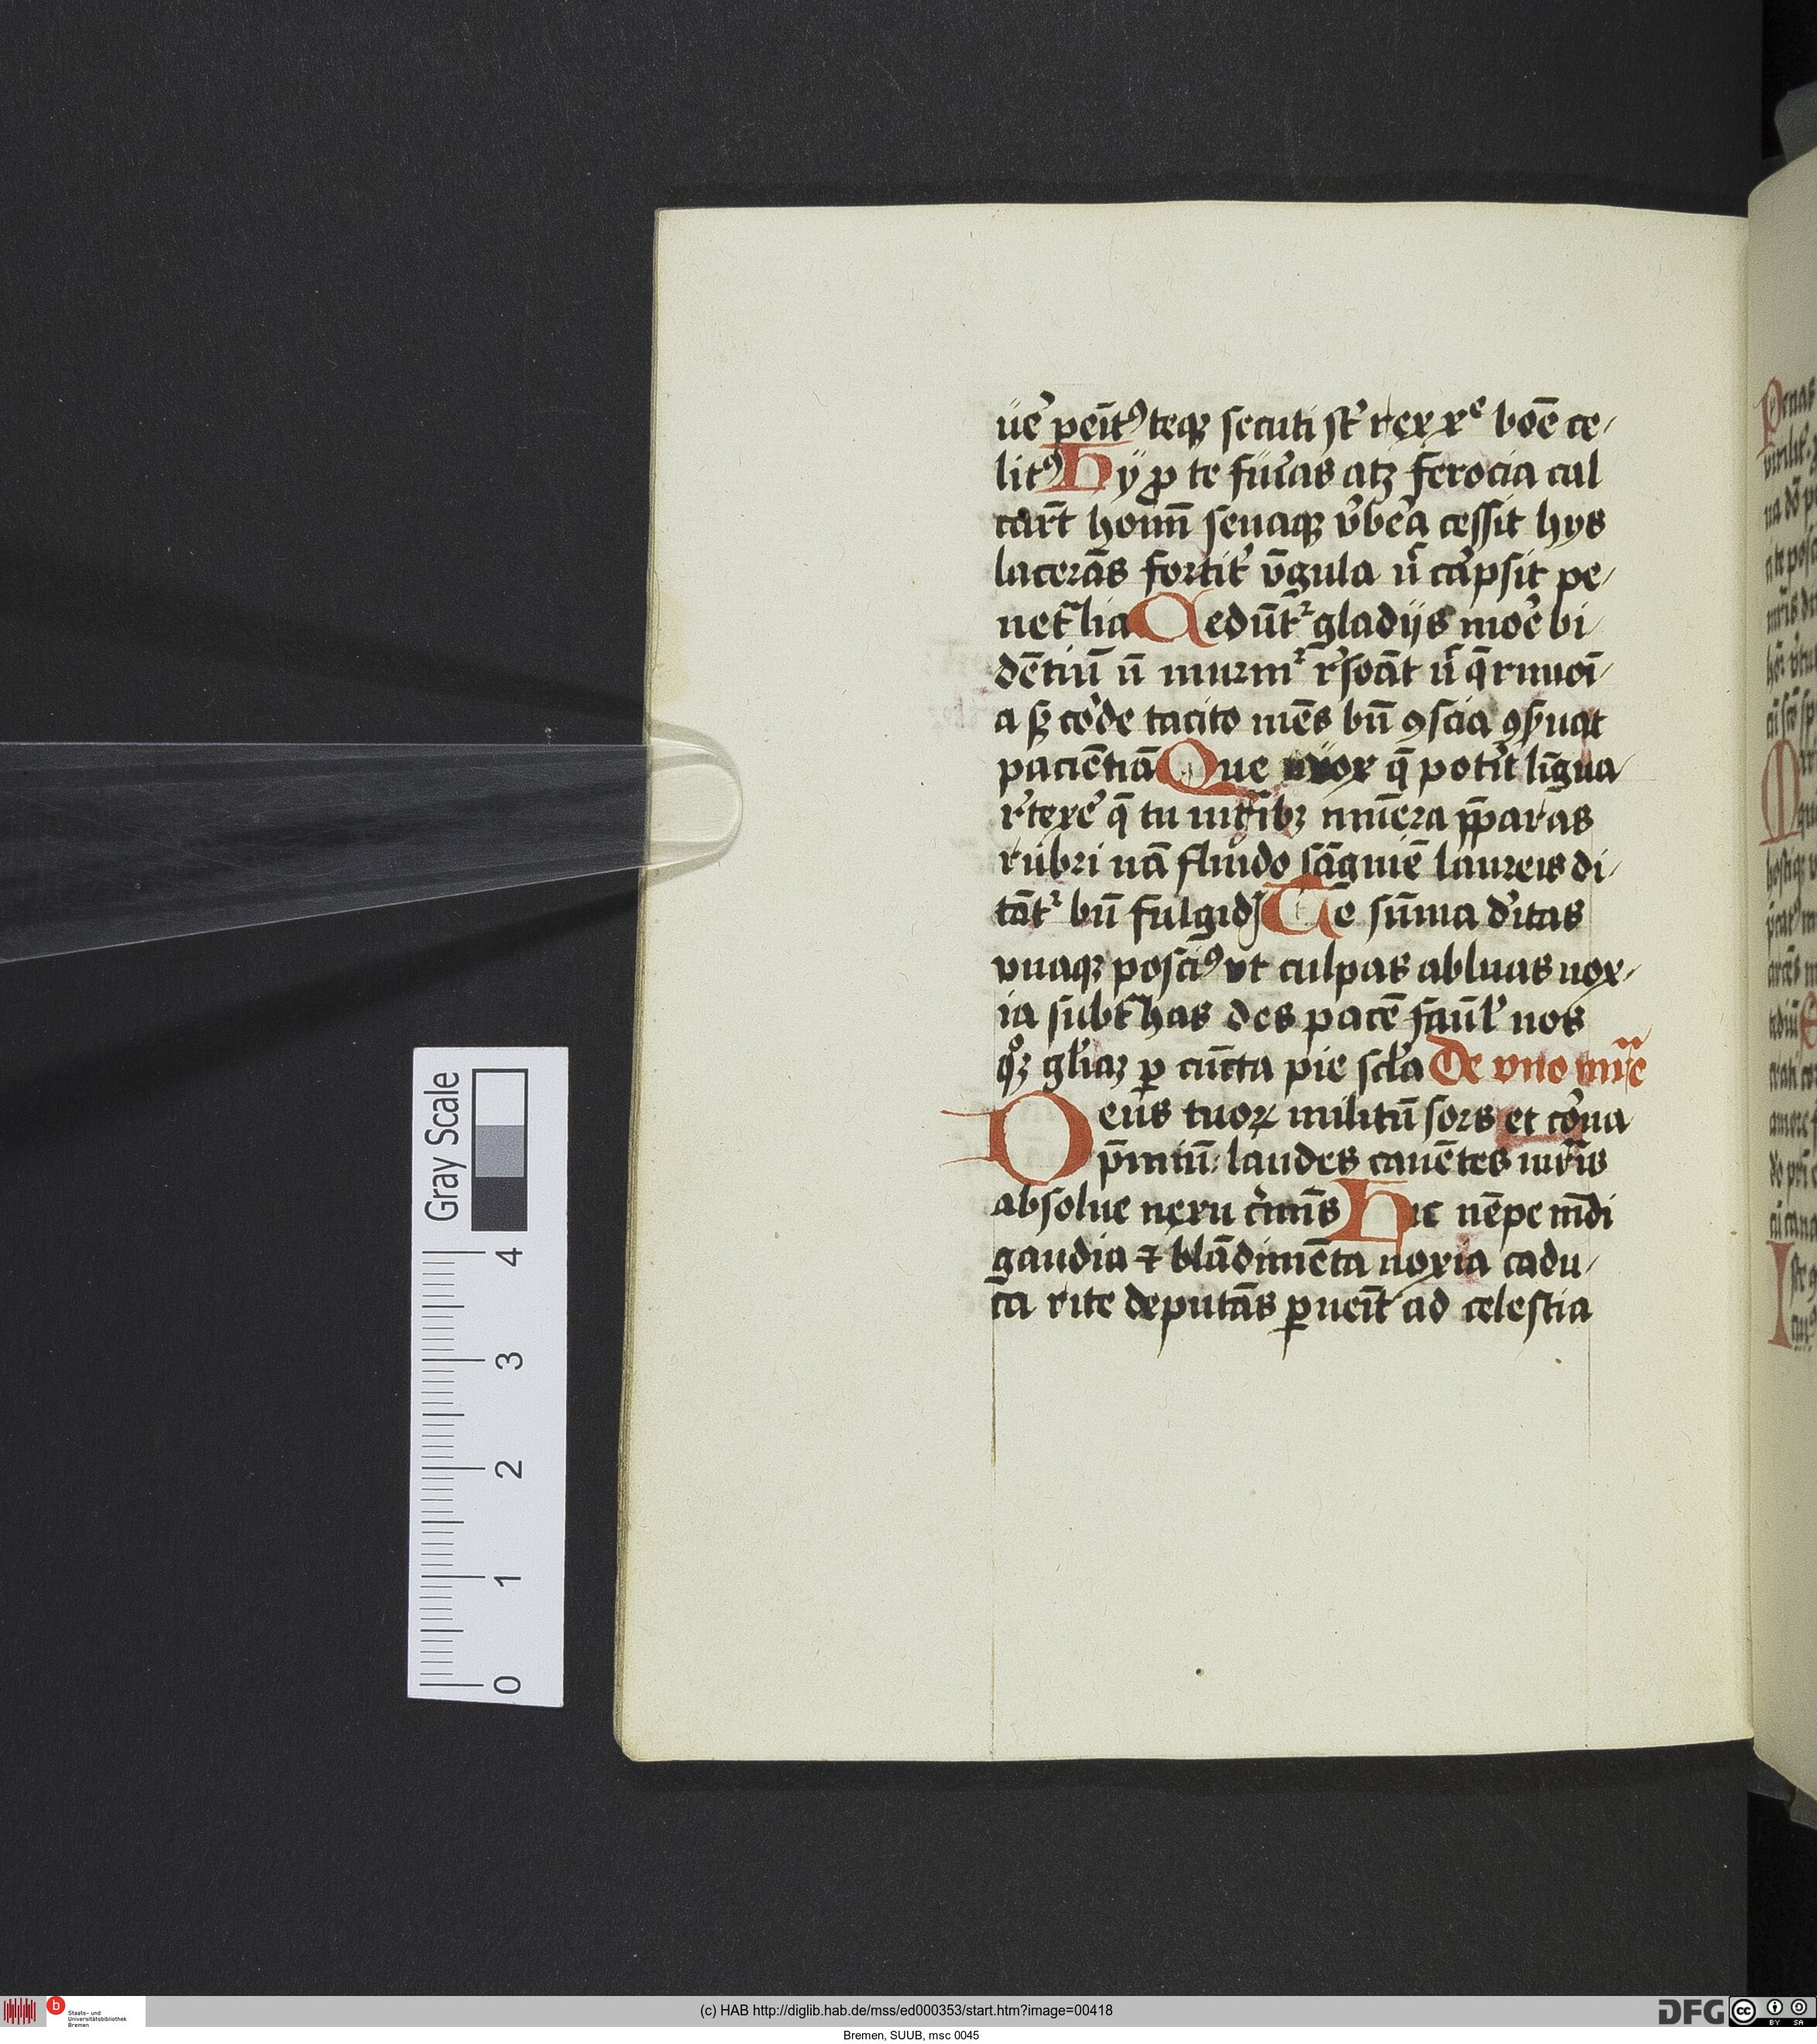 üe᷒ peīt᷒ teqꝫ secuti st᷒ rex xe boē ce/
lit᷒ Hÿ ꝓ te fuı᷒as atꝫ ferocia cal
cart̄ hoīm seuaqꝫ v᷒be᷒a cessit hys
lacerās fortit᷒ v̄gula n᷒ ca᷒psit pe/
net᷒lia Cedūt᷒ gladijs mo᷒e bi/
dētiū n̄ murm᷒ r᷒soāt n᷒ q̄rmoī/
a sꝫ co᷒de tacito mēs bn̄ ꝯscia ꝯs᷒uat
paciētiā Que vox q̄ pot᷒it līgua/
r᷒texe᷒ q̄ tu mr̄ībꝫ mūera p̄paras
rubri nā fluido sāguīe laureis di/
tāt᷒ bn̄ fulgidꝭ Te sūma d᷒itas
vnaqꝫ posci᷒ vt culpas abluas nox/
ia subt᷒has des pacē faul᷒ nos
qͦꝫ gl᷒iaꝫ ꝑ cūcta pie scl᷒a De vno mr̄e
Deus tuoꝝ militū sors et co᷒na
p̄miū: laudes canētes mr̄is
absolue nexu c᷒imīs Hic nēpe mūdi
gaudia ⁊ blādimēta noxia cadu/
ca rite deputās ꝑueīt ad celestia
Gray Scale
4
3
2
1
0
b
Staats- und
Universitätsbibliothek
Bremen
(c) HAB http://diglib.hab.de/mss/ed000353/start.htm?image=00418
DFG
cc BY SA
Bremen, SUUB, msc 0045